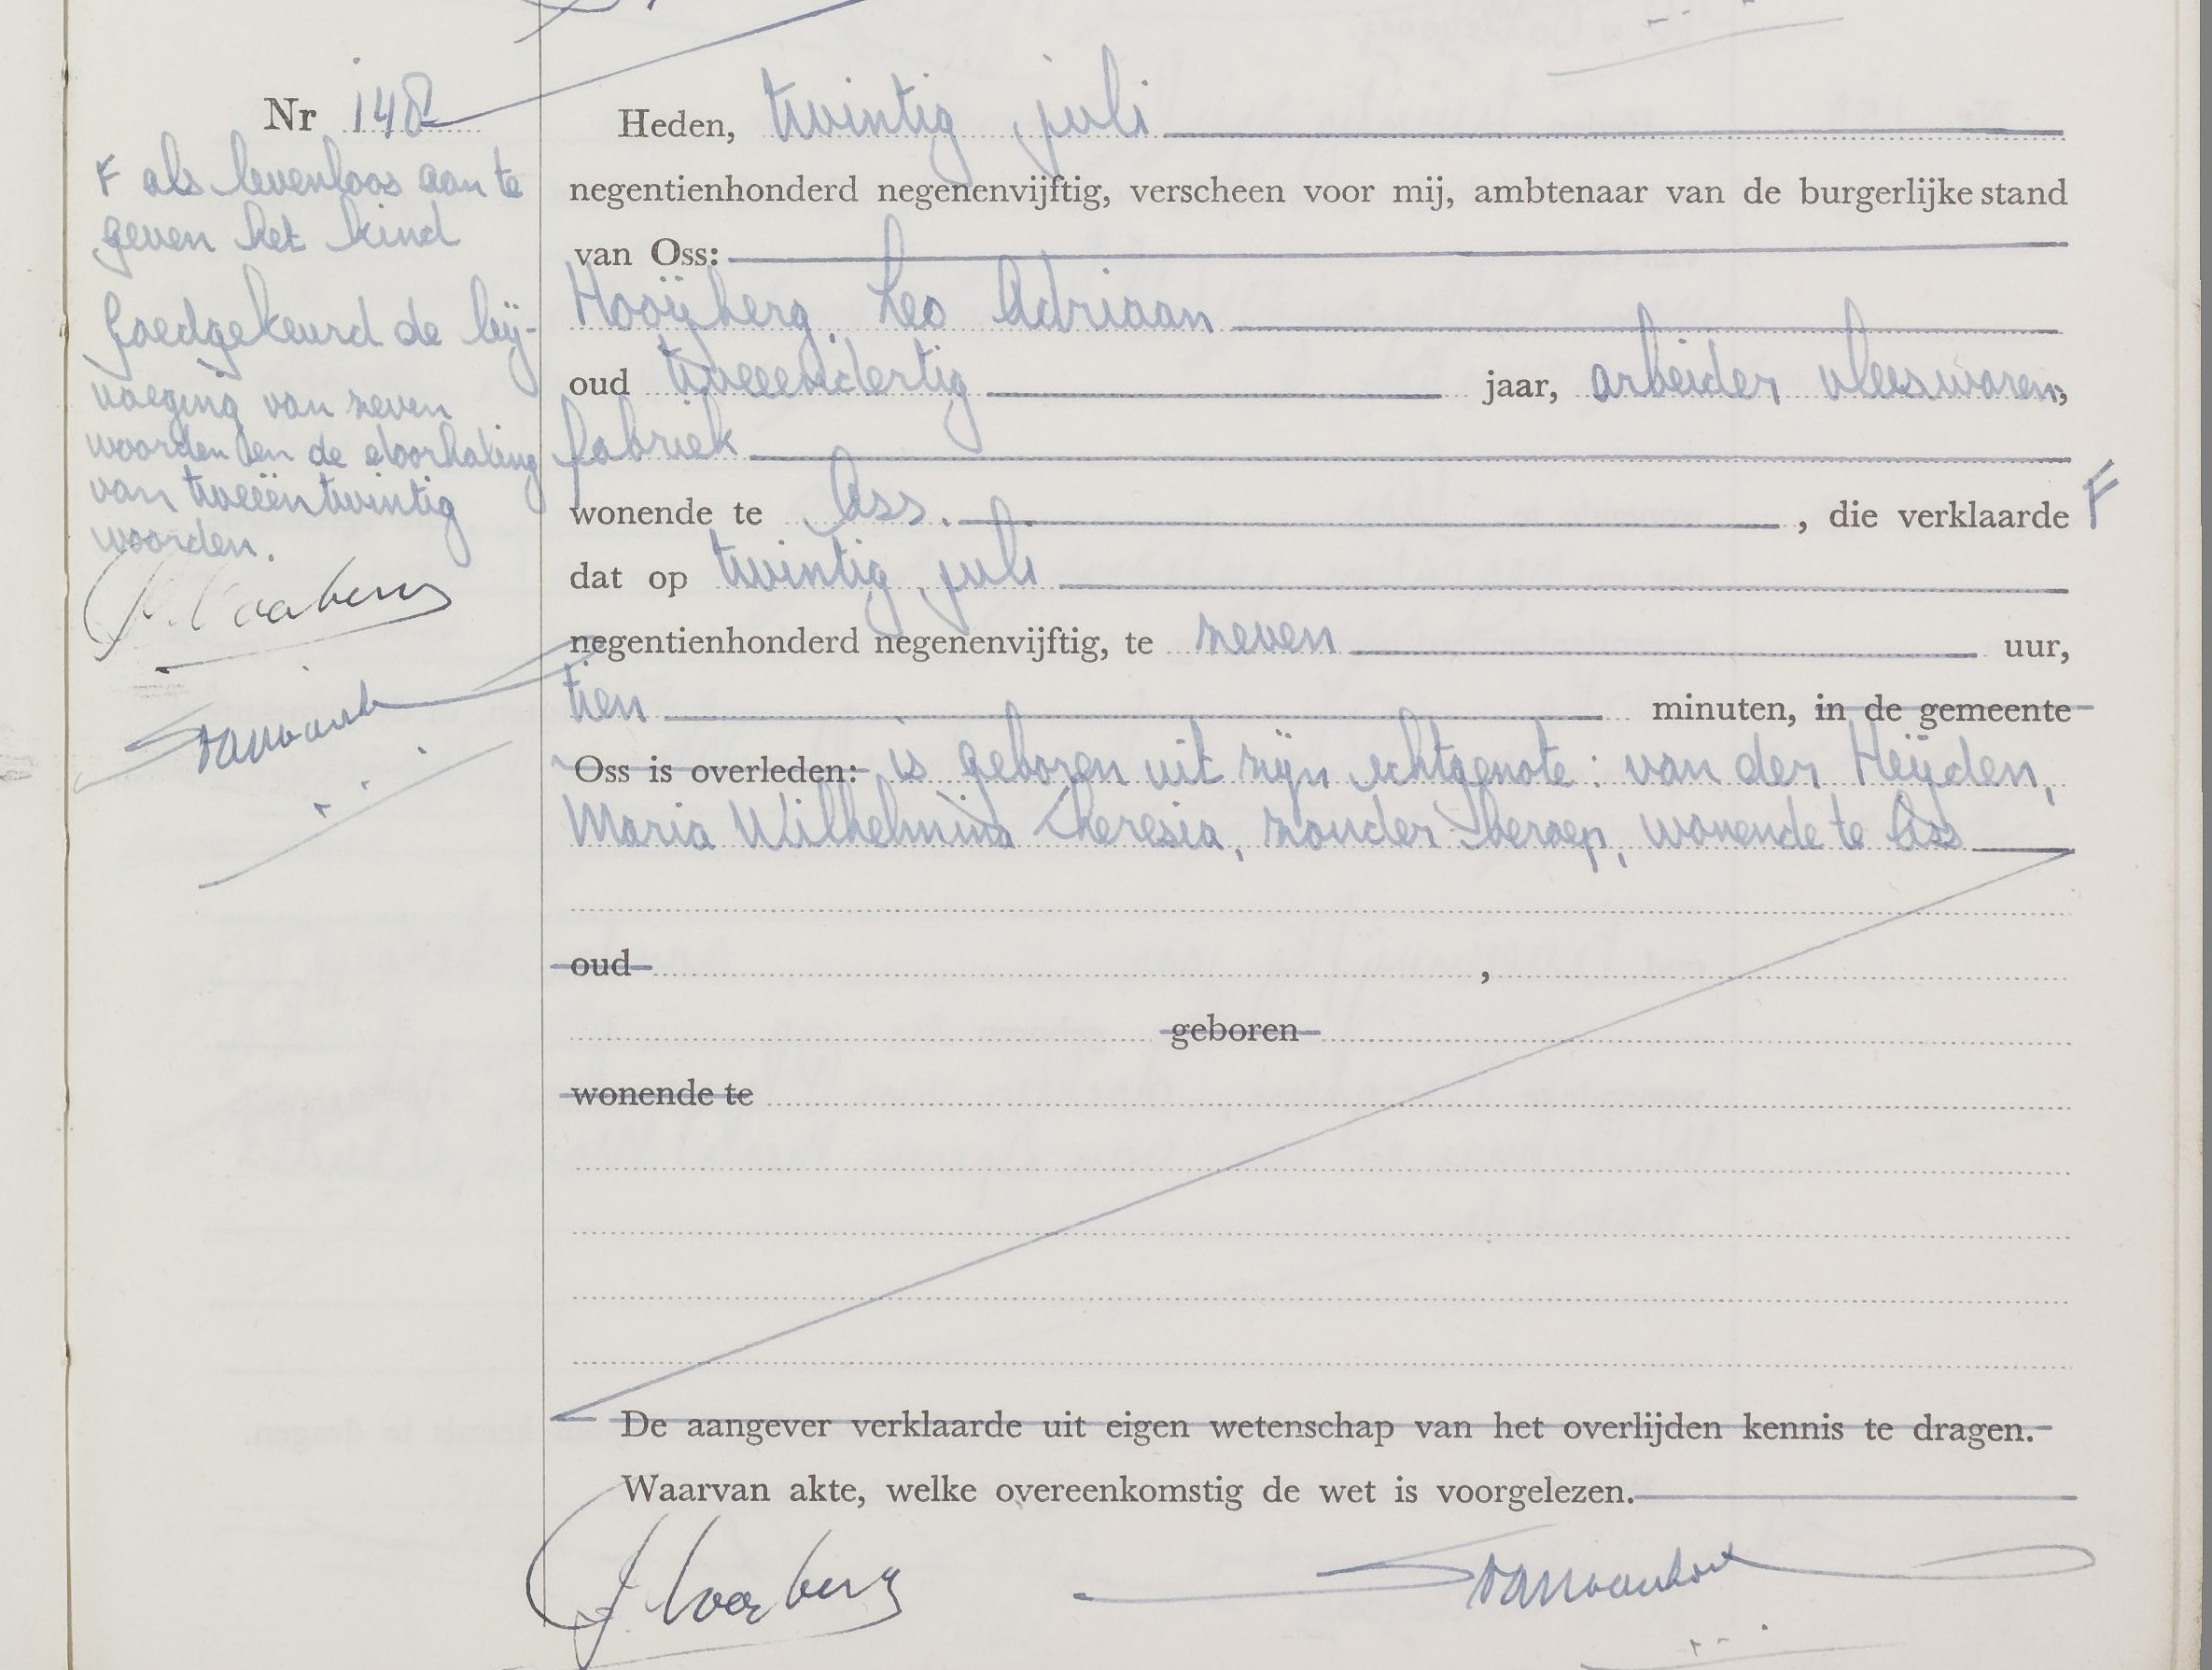 Nr 148
F als levenloos aan te
geven het kind
Goedgekeurd de bij-
voeging van zeven
woorden en de doorhaling
van tweeëntwintig
woorden.
Heden, twintig juli
negentienhonderd negenenvijftig, verscheen voor mij, ambtenaar van de burgerlijke stand
van Oss:
Hooijberg, Leo Adriaan
oud tweeendertig jaar, arbeider vleeswaren,
fabriek
wonende te Oss. , die verklaarde F
dat op twintig juli
negentienhonderd negenenvijftig, te zeven uur,
tien minuten, in de gemeente
Oss is overleden: is geboren uit zijn echtgenote: van der Heijden,
Maria Wilhelmina Theresia, zonder beroep, wonende te Oss
oud ,
geboren
wonende te
De aangever verklaarde uit eigen wetenschap van het overlijden kennis te dragen.
Waarvan akte, welke overeenkomstig de wet is voorgelezen.